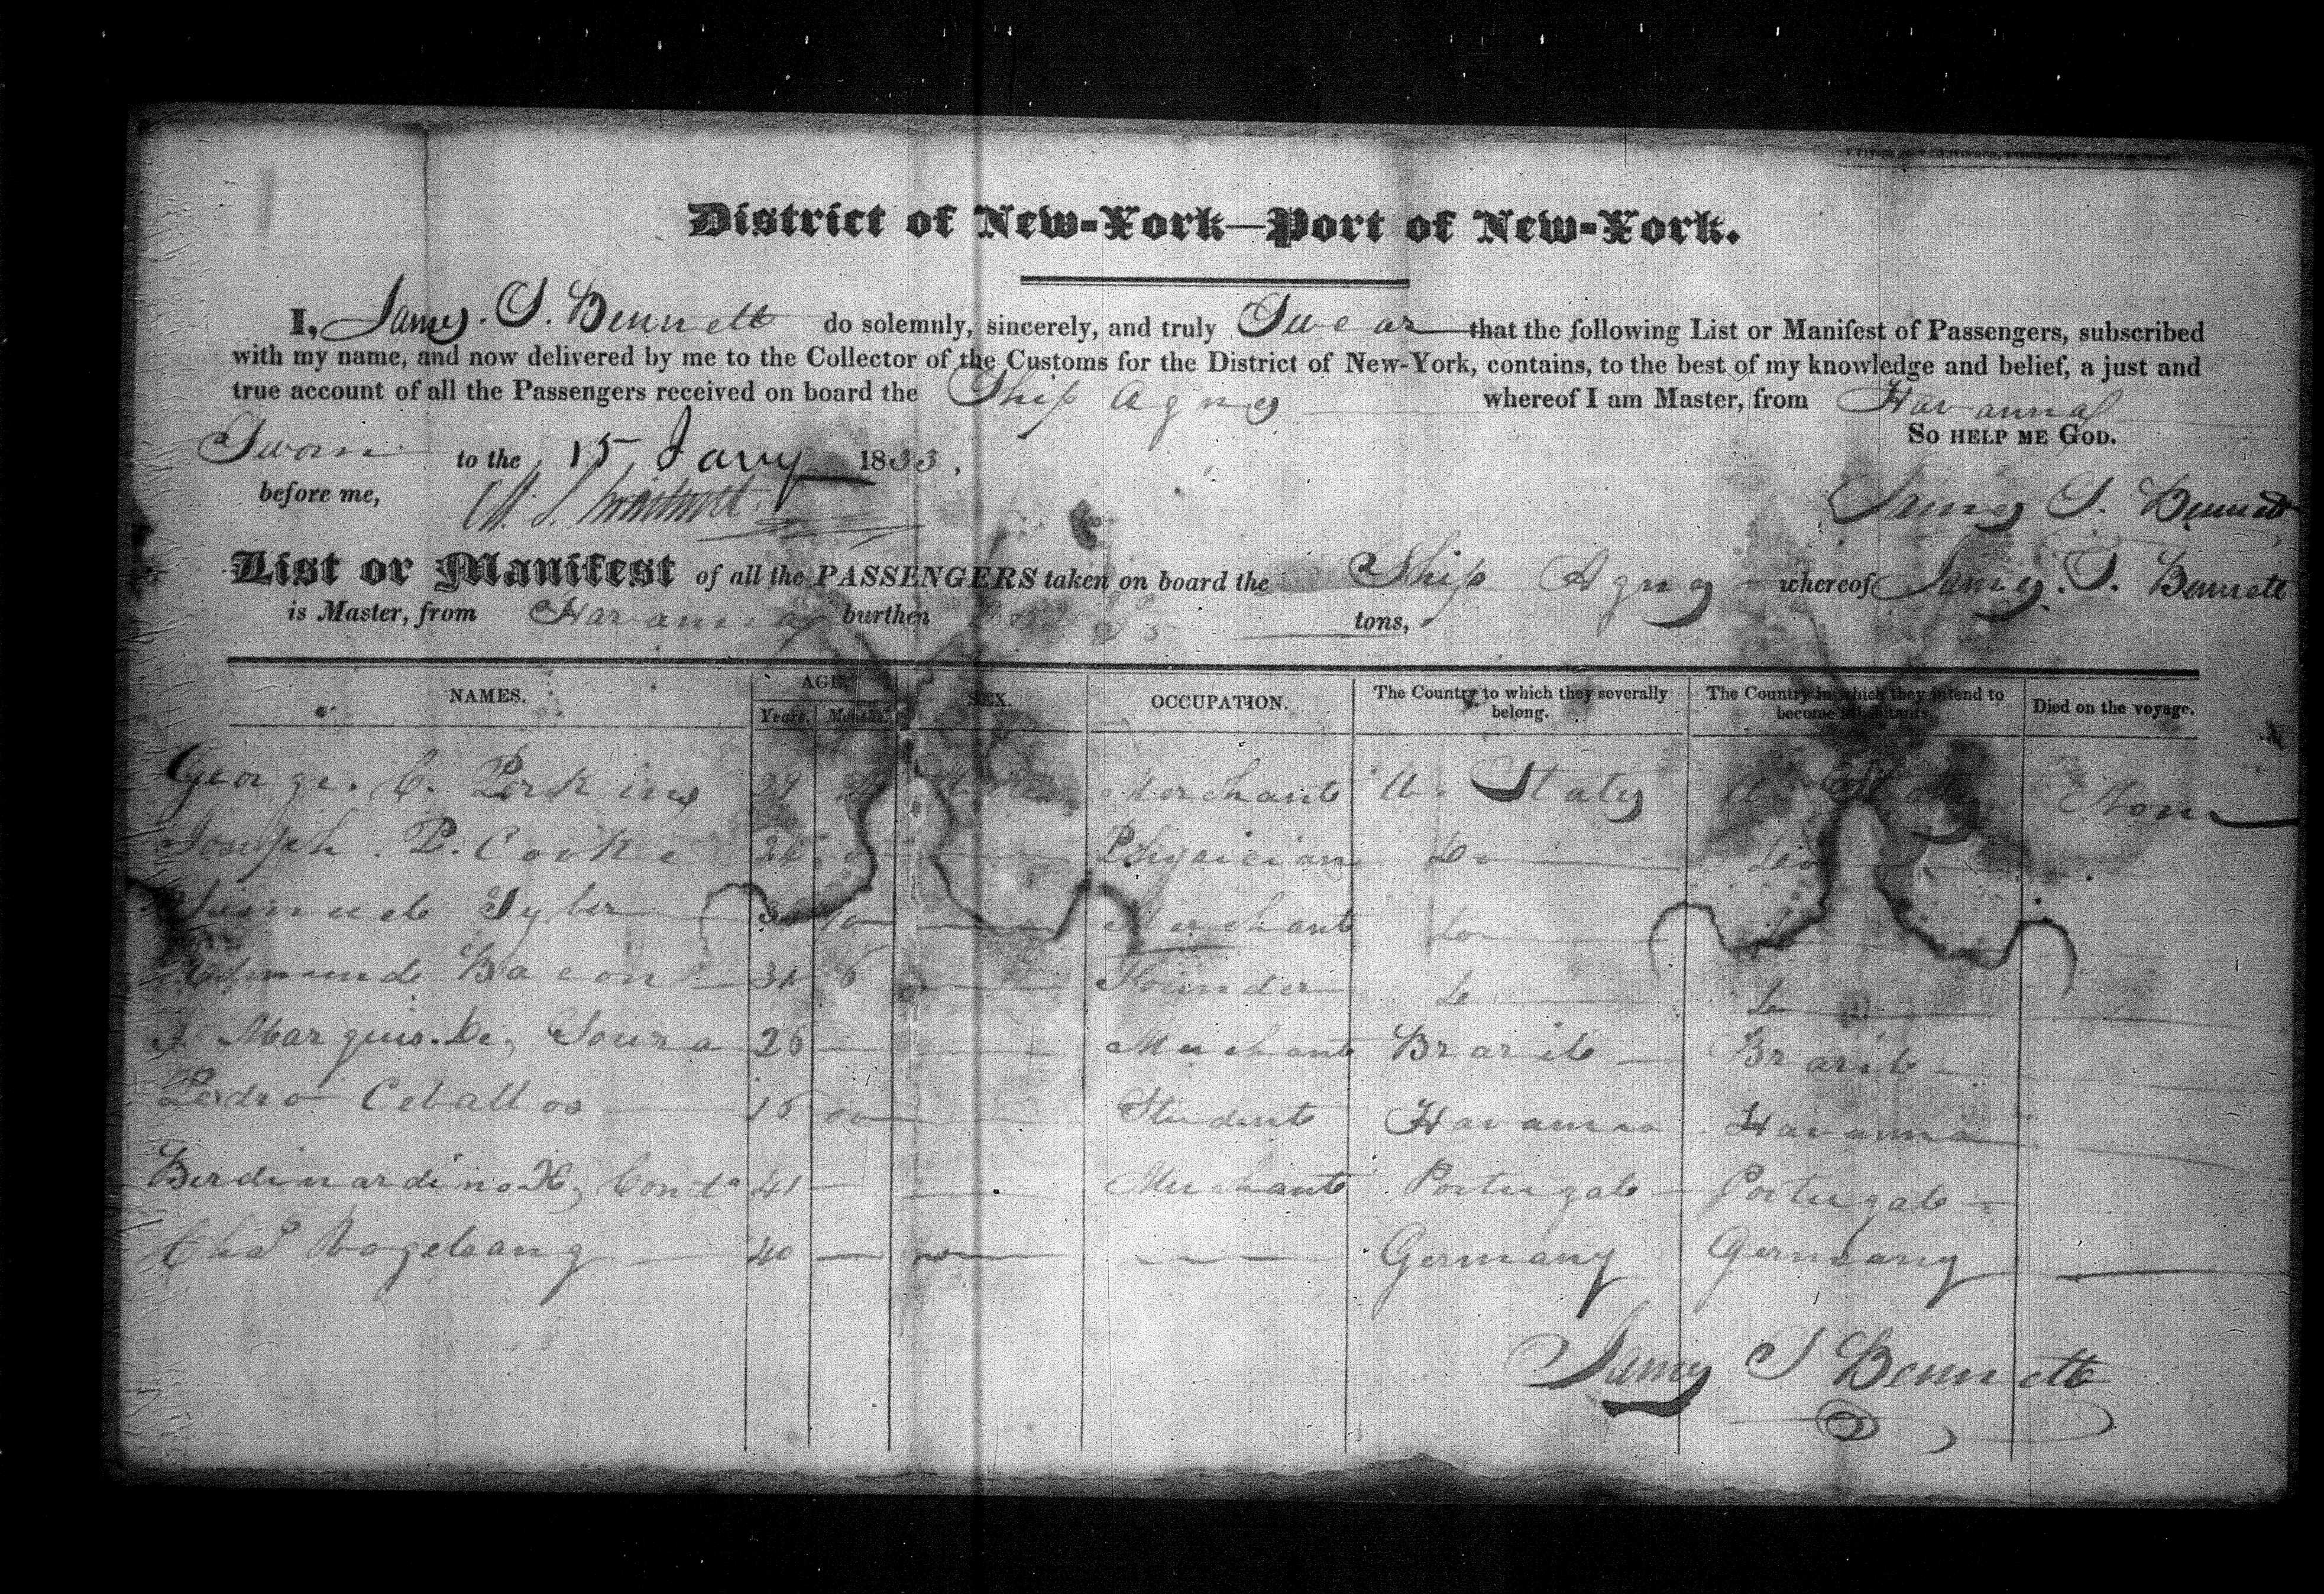 District of New-York—Port of New-York.
I, James. S. Bennett do solemnly, sincerely, and truly Swear that the following List or Manifest of Passengers, subscribed
with my name, and now delivered by me to the Collector of the Customs for the District of New-York, contains, to the best of my knowledge and belief, a just and
true account of all the Passengers received on board the Ship Agnes whereof I am Master, from Havanna
So help me God.
Sworn to the 15 Jany 1833,
before me,
James S. Bennett
List or Manifest of all the PASSENGERS taken on board the Ship Agnes whereof James. S. Bennett
is Master, from Havanna burthen tons,
NAMES. AGE. SEX. OCCUPATION. The Country to which they severally belong. The Country in which they intend to become inhabitants. Died on the voyage.
Years. Months.
George. C. Perkins 29 Merchant U. States U States None
Joseph. P. Cooke Physician Do Do
Tyler Merchant Do Do
Edmund Bacon 31 6 Founder Do Do
Marquis. De, Souza 26 Merchant Brazil Brazil
Pedro Ceballos 16 Student Havanna Havanna
Berdinardino 41 Merchant Portugal Portugal
Chas Vogelsang 40 Germany Germany
James S Bennett